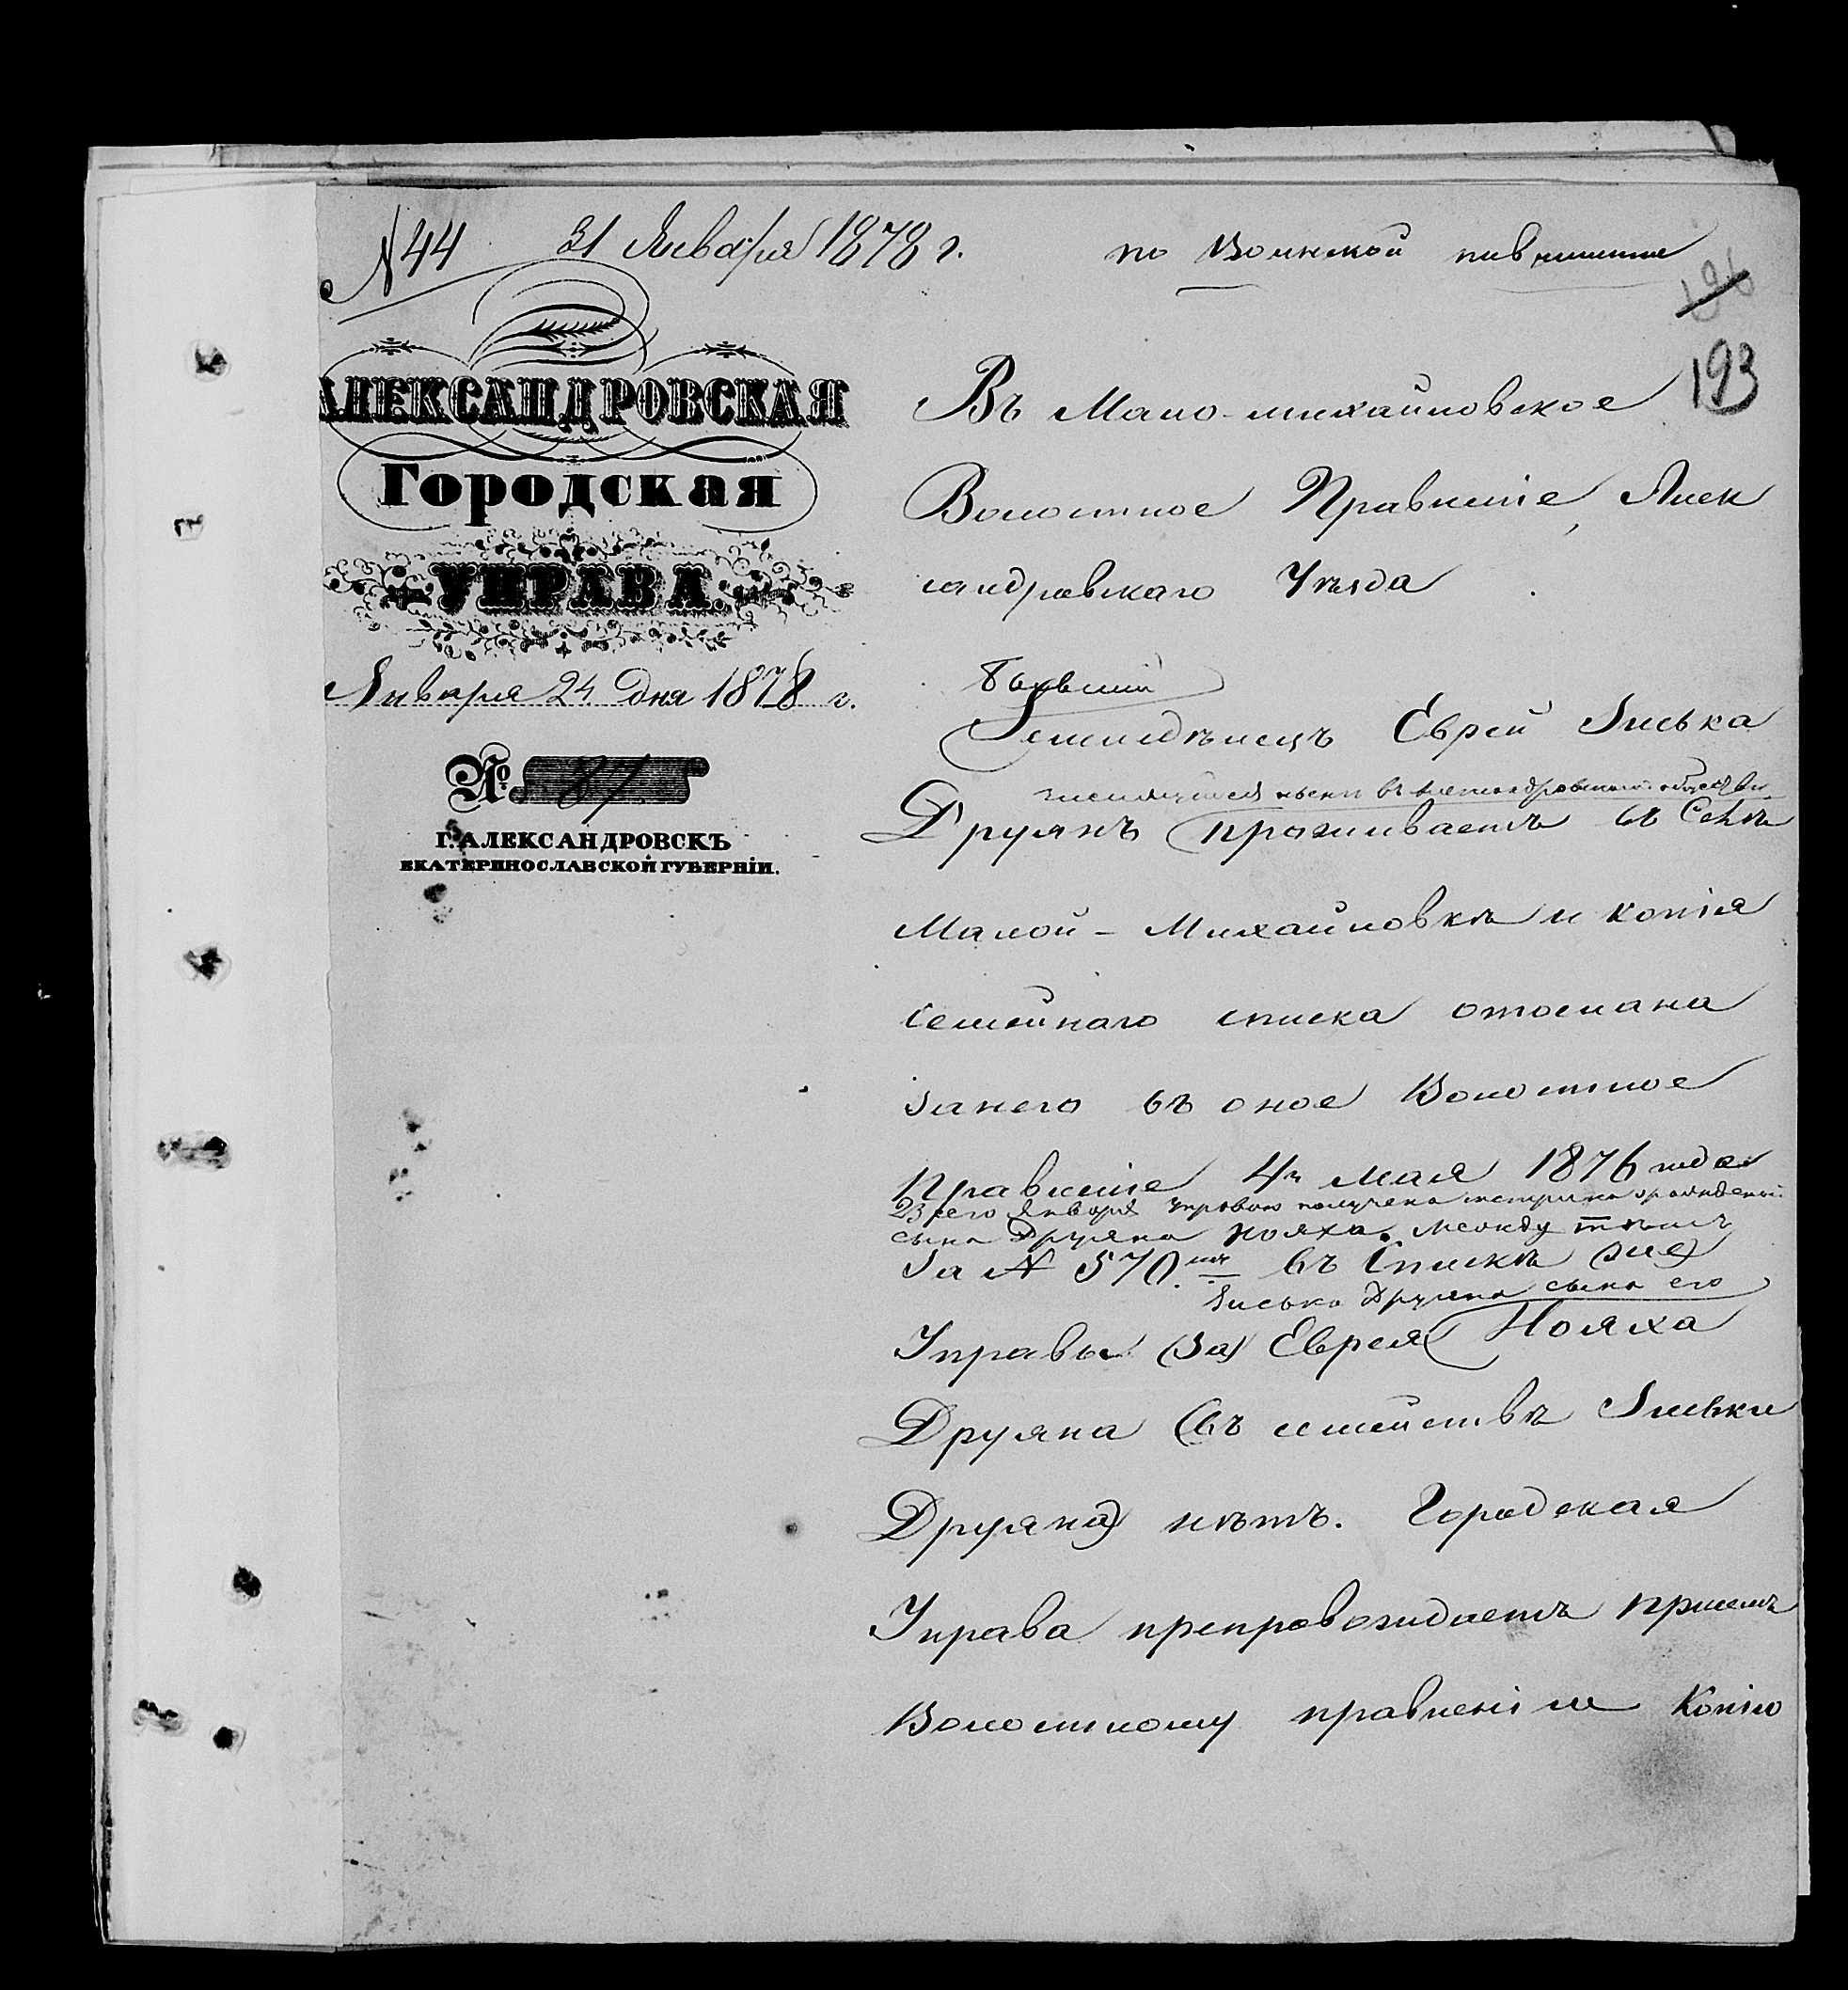 № 44 31 Января 1878 г. по Воинской повинности
196
193
АЛЕКСАНДРОВСКАЯ
Городская
УПРАВА.
Января 24 дня 1878 г.
№ 87
Г. АЛЕКСАНДРОВСКЪ
ЕКАТЕРИНОСЛАВСКОЙ ГУБЕРНІИ.
Въ Мало-михайловское
Волостное Правленіе, Алек
сандровскаго Уѣзда
бывшій
Земледѣлецъ Еврей Зиська
числящійся нынѣ въ Александровскомъ обществѣ
Друянъ проживаетъ въ Селѣ
Малой-Михайловкѣ и копія
семейнаго списка отослана
занего въ оное Волостное
Правленіе 4го мая 1876 года
23 сего Января Управою получена метрика о рожденіи
сына Друяна Нояха. Между тѣмъ
За № 570.мъ въ Спискѣ же
Зиська Друяна сына его
Управы (за) Еврея Нояха
Друяна (въ семействѣ Зиськи
Друяна) нѣтъ. Городская
Управа препровождаетъ присемъ
Волостному правленію Копію